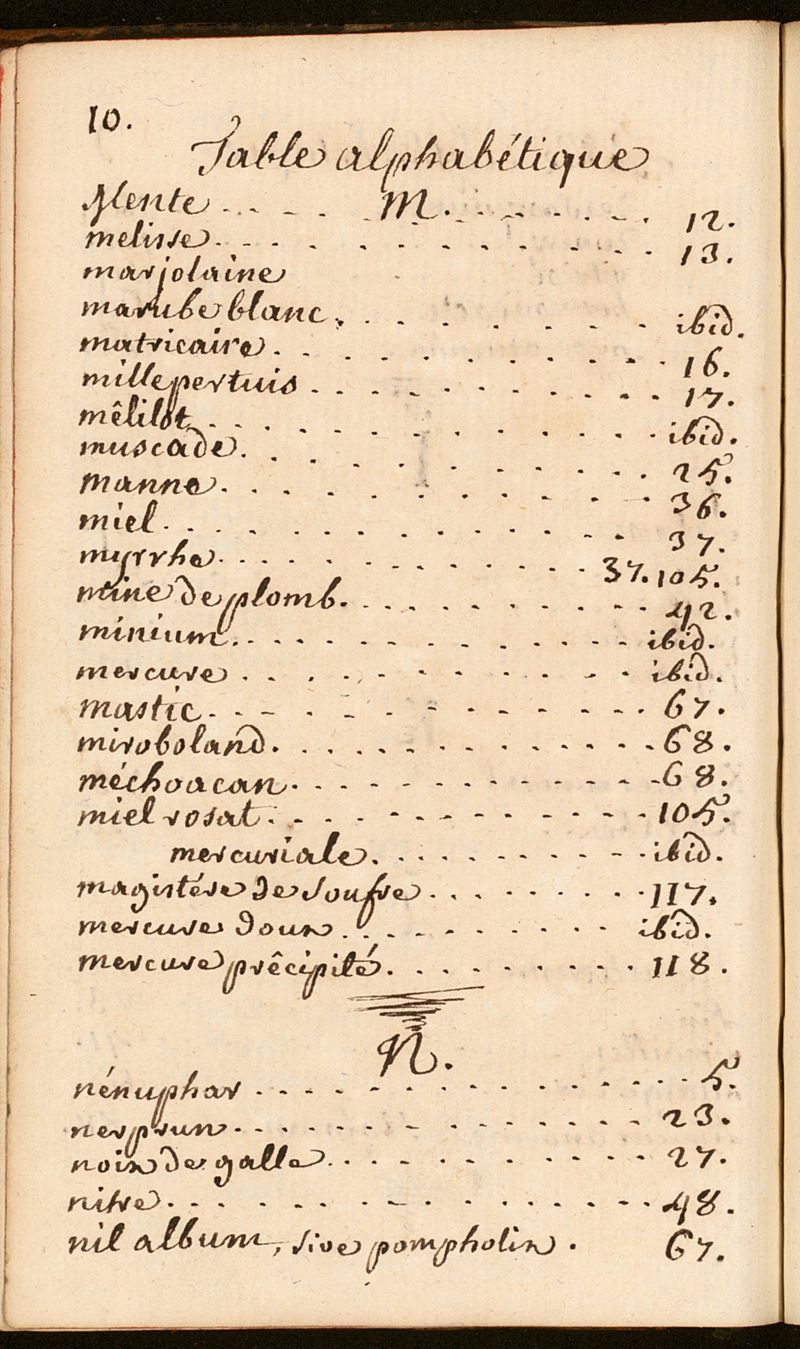 10.
Table alphabétique
M.
Mente 12.
melisse 13.
marjolaine
marube blanc ibid.
matricaire 16.
millepertuis 17.
mêlilot ibid.
muscade 25.
manne 36.
miel 37.
myrrhe 37. 105.
mine de plomb 42.
minium ibid.
mercure ibid.
mastic 67.
miroboland 68.
méchoacan 68.
miel rosat 105.
mercuriale ibid.
magistére de soufre 117.
mercure doux ibid.
mercure prêcipité 118.
N.
nénuphar 5.
nerprun 23.
noix de galle 27.
nitre 48.
nil album, sive pompholix. 67.